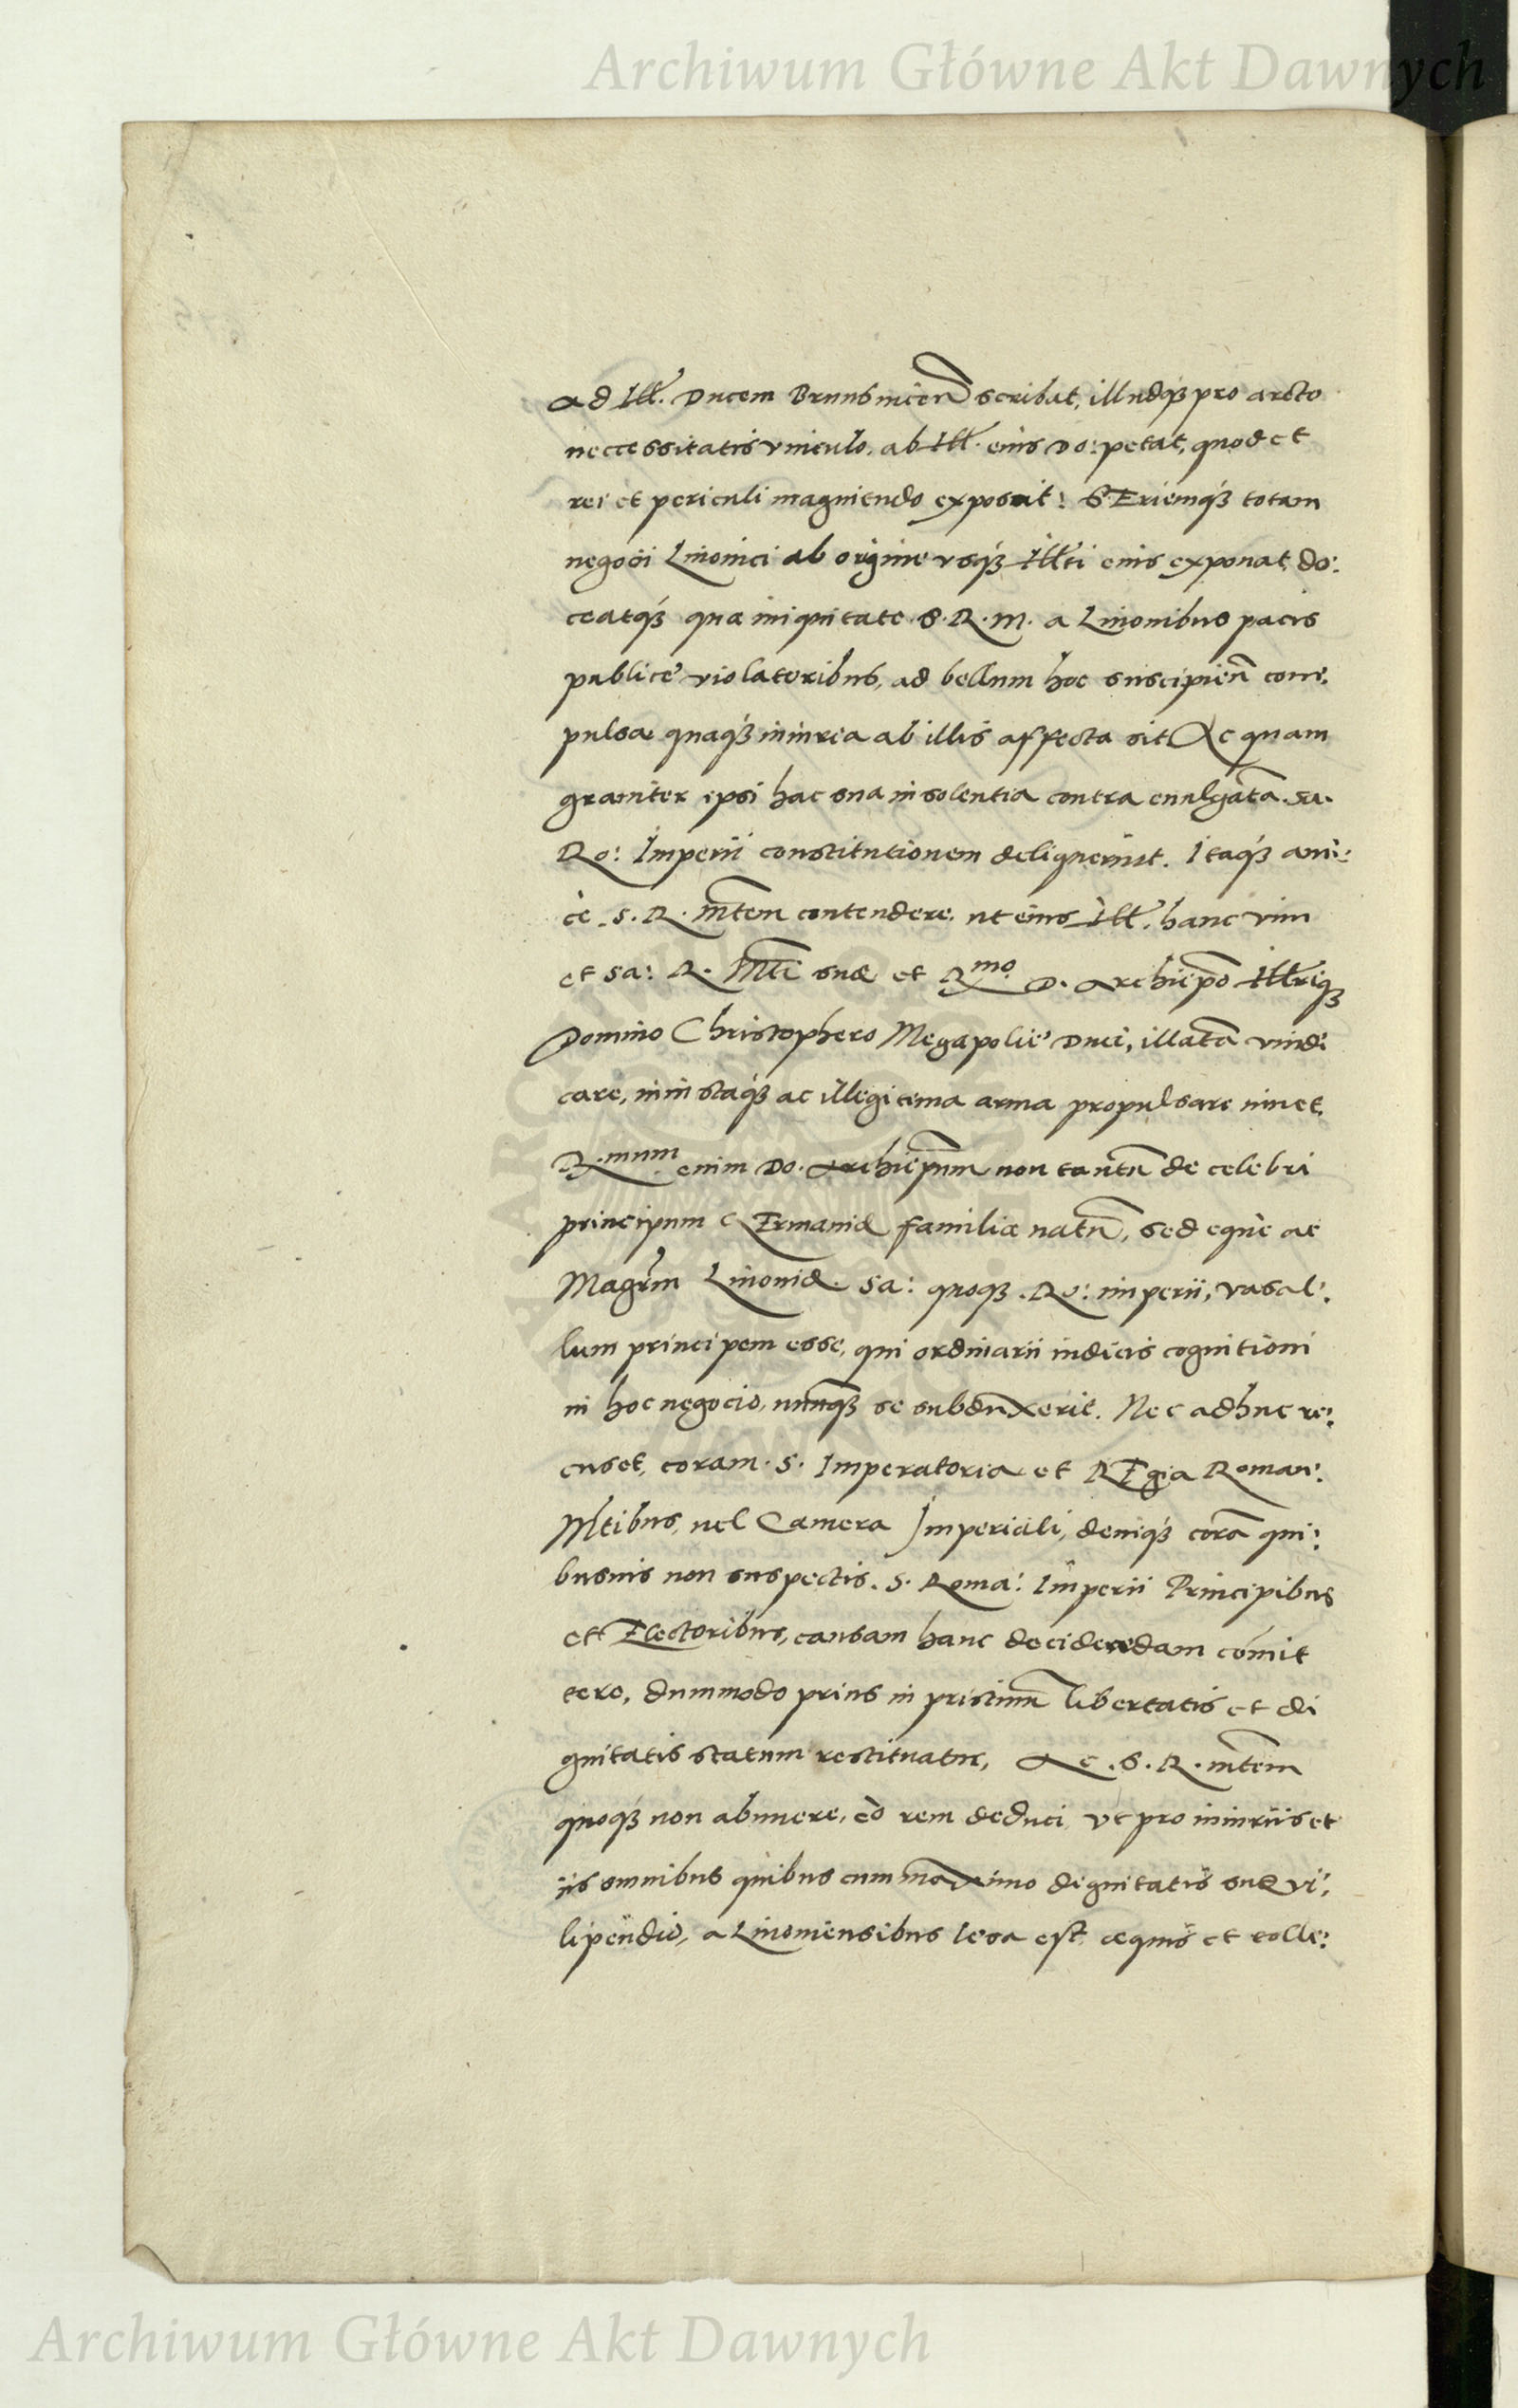 Archiwum Główne Akt Dawnych
ad Ill. Ducem Brunsuicen̄ scribat, illudq̃ pro arcto
neccessitatis vinculo, ab Ill. eius Do: petat, quod et
rei et periculi magnitudo exposcit: SEriemq̃ totam
negocii Liuonici ab origine vsq̃ Illti eius exponat, do:
ceatq̃ qua iniquitate S. R. M. a Liuonibus pacis
publicę violatoribus, ad bellum hoc suscipien̄ com:
pulsa, quaq̃ iniuria ab illis affecta sit Ac quam
grauiter ipsi hac sua insolentia contra euulgatā. sa.
Ro: Imperii constitutionem deliquerint. Itaq̃ ami:
cè. S. R. Mtem contendere, ut eius Ill. hanc vim
et sa: R. Mti suæ et Rmo D. Archiepō Illriq̃
Domino Christophero Megapolię Duci, illatā vindi
care, iniustaq̃ ac illegitima arma propulsare iuuet.
R.mum enim Do. Archiepum non tantū de celebri
principum GErmaniæ familia natū, sed eque ac
Magrm̄ Liuoniæ. sa: quoq̃. Ro: imperii, vasal:
lum principem esse, qui ordinarii iudicis cognitioni
in hoc negocio, nunq̃ se subduxerit. Nec adhuc re:
cuset, coram. S. Imperatoria et REgia Roman:
Mtibus, uel Camera Imperiali, deniq̃ corā qui:
busuis non suspectis. S. Roma: Imperii Principibus
et Electoribus, causam hanc decidendam comit
tere, dummodo prius in pristinū libertatis et di
gnitatis statum restituatur, Ac. S. R. mtem
quoq̃ non abnuere, eò rem deduci, vt pro iniuriis et
iis omnibus quibus cum maximo dignitatis suæ vi:
lipendio, a Liuoniensibus lesa est, æquis et tolle:
Archiwum Główne Akt Dawnych